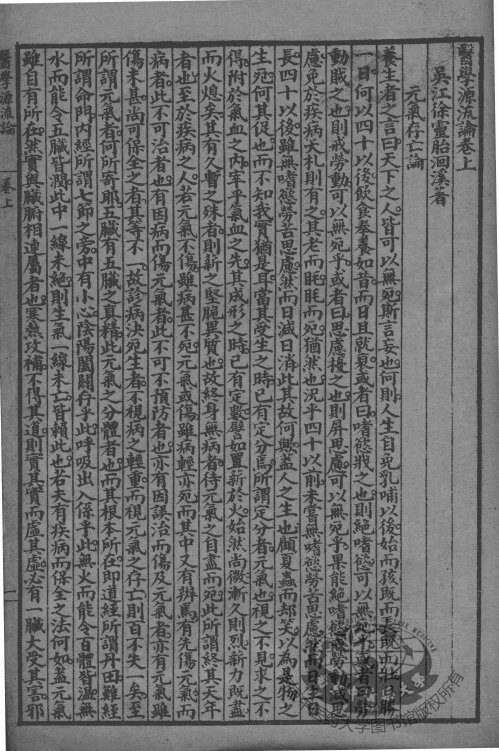 醫學源流論卷上
吳江徐靈胎洄溪著
元氣存亡論
養生者之言曰天下之人皆可以無死斯言妄也何則人生自免乳哺以後始而孩既而長既而壯日勝
一日何以四十以後飲食奉養如昔而日且就衰或者曰嗜慾戕之也則絕嗜慾可以無死乎或者曰勞
動賊之也則戒勞動可以無死乎或者曰思慮擾之也則屏思慮可以無死乎果能絕嗜慾戒勞動減思
慮免於疾病夭札則有之其老而眊眊而死猶然也況乎四十以前未嘗無嗜慾勞苦思慮然而日生日
長四十以後雖無嗜慾勞苦思慮然而日減日消此其故何歟蓋人之生也顧夏蟲而却笑以為是物之
生死何其促也而不知我實猶是耳當其受生之時已有定分焉所謂定分者元氣也視之不見求之不
得附於氣血之內宰乎氣血之先其成形之時已有定數譬如置薪於火始然尚微漸久則烈薪力既盡
而火熄矣其有久暫之殊者則薪之堅脆異質也故終身無病者待元氣之自盡而死此所謂終其天年
者也至於疾病之人若元氣不傷雖病甚不死元氣或傷雖病輕亦死而其中又有辨焉有先傷元氣而
病者此不可治者也有因病而傷元氣者此不可不預防者也亦有因誤治而傷及元氣者亦有元氣雖
傷未甚尚可保全之者其等不一故診病決死生者不視病之輕重而視元氣之存亡則百不失一矣至
所謂元氣者何所寄耶五臟有五臟之真精此元氣之分體者也而其根本所在即道經所謂丹田難經
所謂命門內經所謂七節之旁中有小心陰陽闔闢存乎此呼吸出入係乎此無火而能令百體皆溫無
水而能令五臟皆潤此中一線未絕則生氣一線未亡皆賴此也右夫有疾病而保全之法何如蓋元氣
雖自有所在然實與臟腑相連屬者也寒熱攻補不得其道則實其實而虛其虛必有一臟大受其害邪
醫學源流論
卷上
一